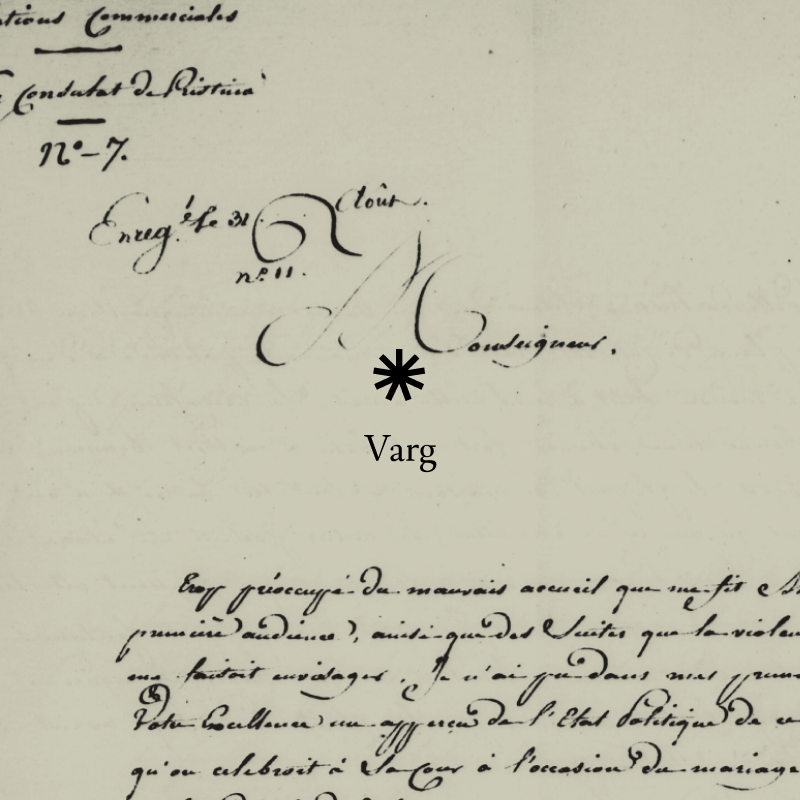 Commerciales
Consulat de
Nº-7.
Enreg.é le 31 Août.
nº 11.
Monseigneur.
Varg
Trop préoccupé du mauvais accueil que me fit
première audience, ainsi que des Suites que la
me faisoit envisager. Je n'ai pu dans mes
Votre Excellence un apperçu de l'Etat Politique de
qu'on celebroit à la Cour à l'occasion du mariage